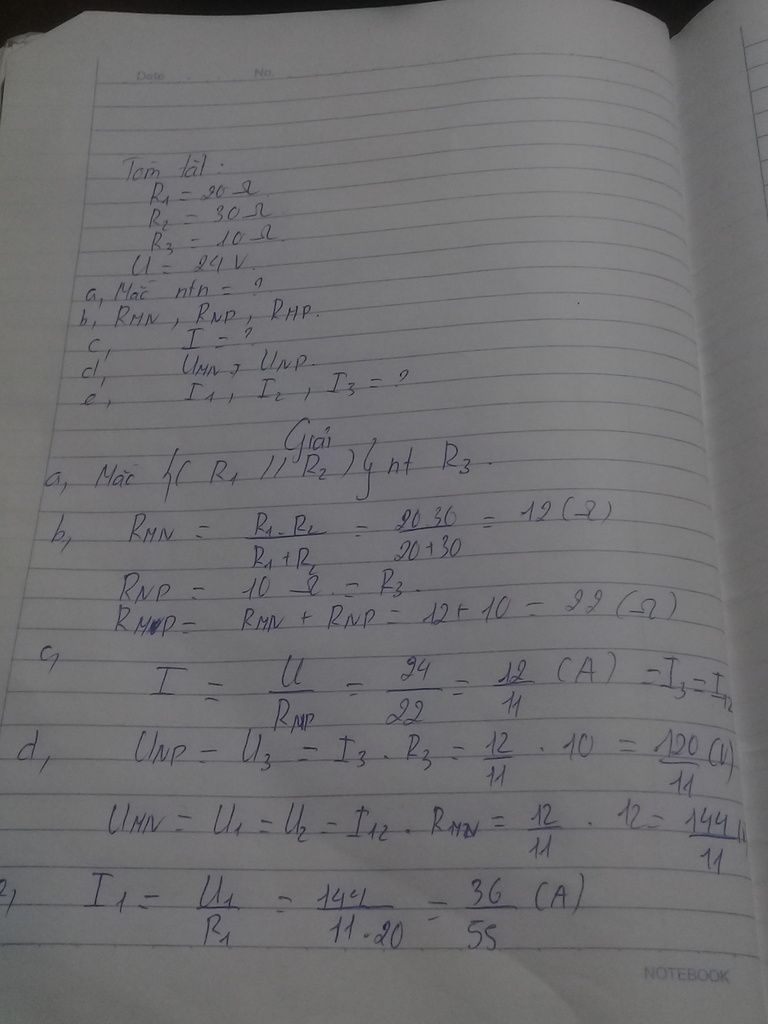 Date No.
Tóm tắt :
R1 = 20 Ω
R2 = 30 Ω
R3 = 10 Ω.
U = 24 V.
a, Mắc ntn = ?
b, RMN , RNP , RMP.
c, I = ?
d, UMN , UNP.
e, I1 , I2 , I3 = ?
Giải
a, Mắc {( R1 // R2 )} nt R3 .
b, RMN = R1 . R2 / R1 + R2 = 20.30 / 20+30 = 12 (Ω)
RNP = 10 Ω = R3 .
RMP = RMN + RNP = 12 + 10 = 22 (Ω)
c,
I = U / RMP = 24 / 22 = 12 / 11 (A) = I3 = I12
d, UNP = U3 = I3 . R3 = 12 / 11 . 10 = 120 / 11 (V)
UMN = U1 = U2 = I12 . RMN = 12 / 11 . 12 = 144 / 11
I1 = U1 / R1 = 144 / 11.20 = 36 / 55 (A)
NOTEBOOK